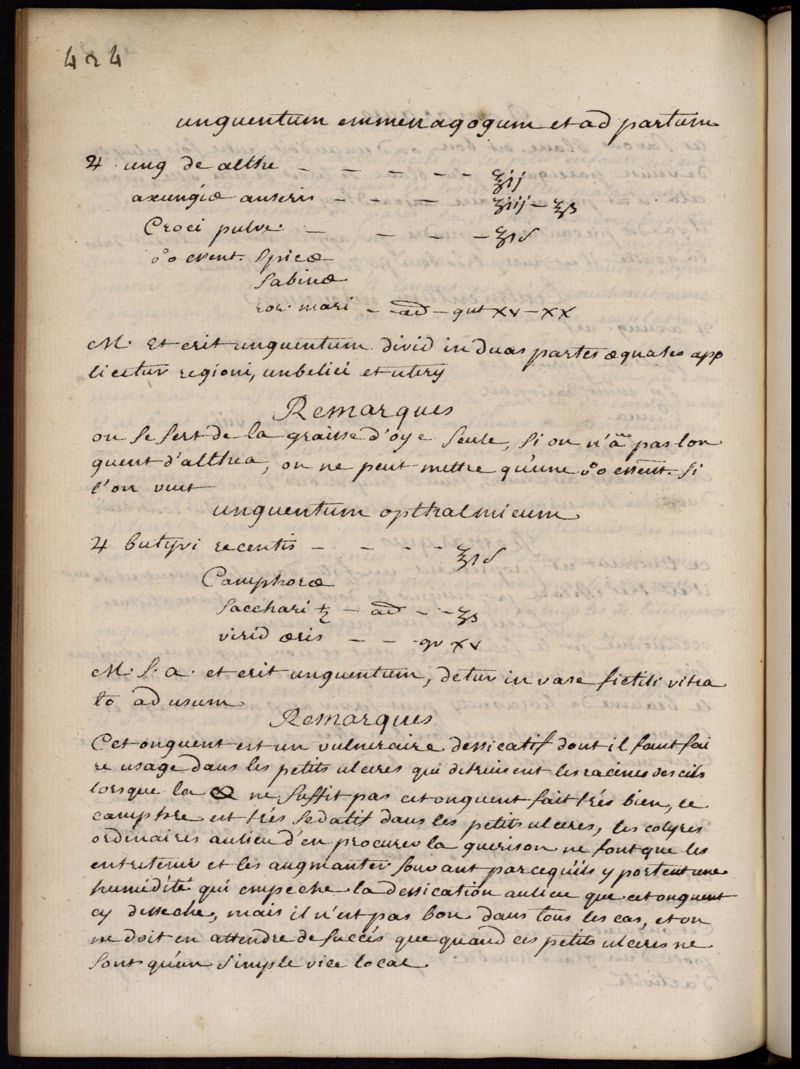 424
unguentum emmenagogum et ad partum
♃ ung de althe — — — — — ℥ij
axungiæ anseris — — — ℥iij — ℥ß
Croci pulve. — — — — ʒ1 δ
o͞o essent. spicæ
sabinæ
ror. mari — ad — gut xv — xx
M. Et erit unguentum. divid in duas partes æquales app
licetur regioni, unbelici et uterj
Remarques
on se sert de la graisse d'oye seule, si on n'a pas lon
guent d'althea, on ne peut mettre qu'une o͞o essent. si
l'on veut
unguentum opthalmicum
♃ butyri recentis — — — — ℥1 δ
Camphoræ
Sacchari ♄ — ad — — ʒß
virid æris — — gr xv
M. S. a. et erit unguentum, detur in vase fictili vitra
to ad usum
Remarques
Cet onguent est un vulneraire dessicatif dont il faut fai
re usage dans les petits ulceres qui detruisent les racines des cils
lorsque la ne suffit pas cet onguent fait trés bien, le
camphre est trés sedatif dans les petits ulceres, les colyres
ordinaires aulieu d'en procurer la guerison ne font que les
entretenir et les augmanter souvant parcequ'ils y portent une
humidité qui empeche la dessication aulieu que cet onguent
cy desseche, mais il n'est pas bon dans tous les cas, et on
ne doit en attendre de succés que quand ces petits ulceres ne
sont qu'un simple vice local